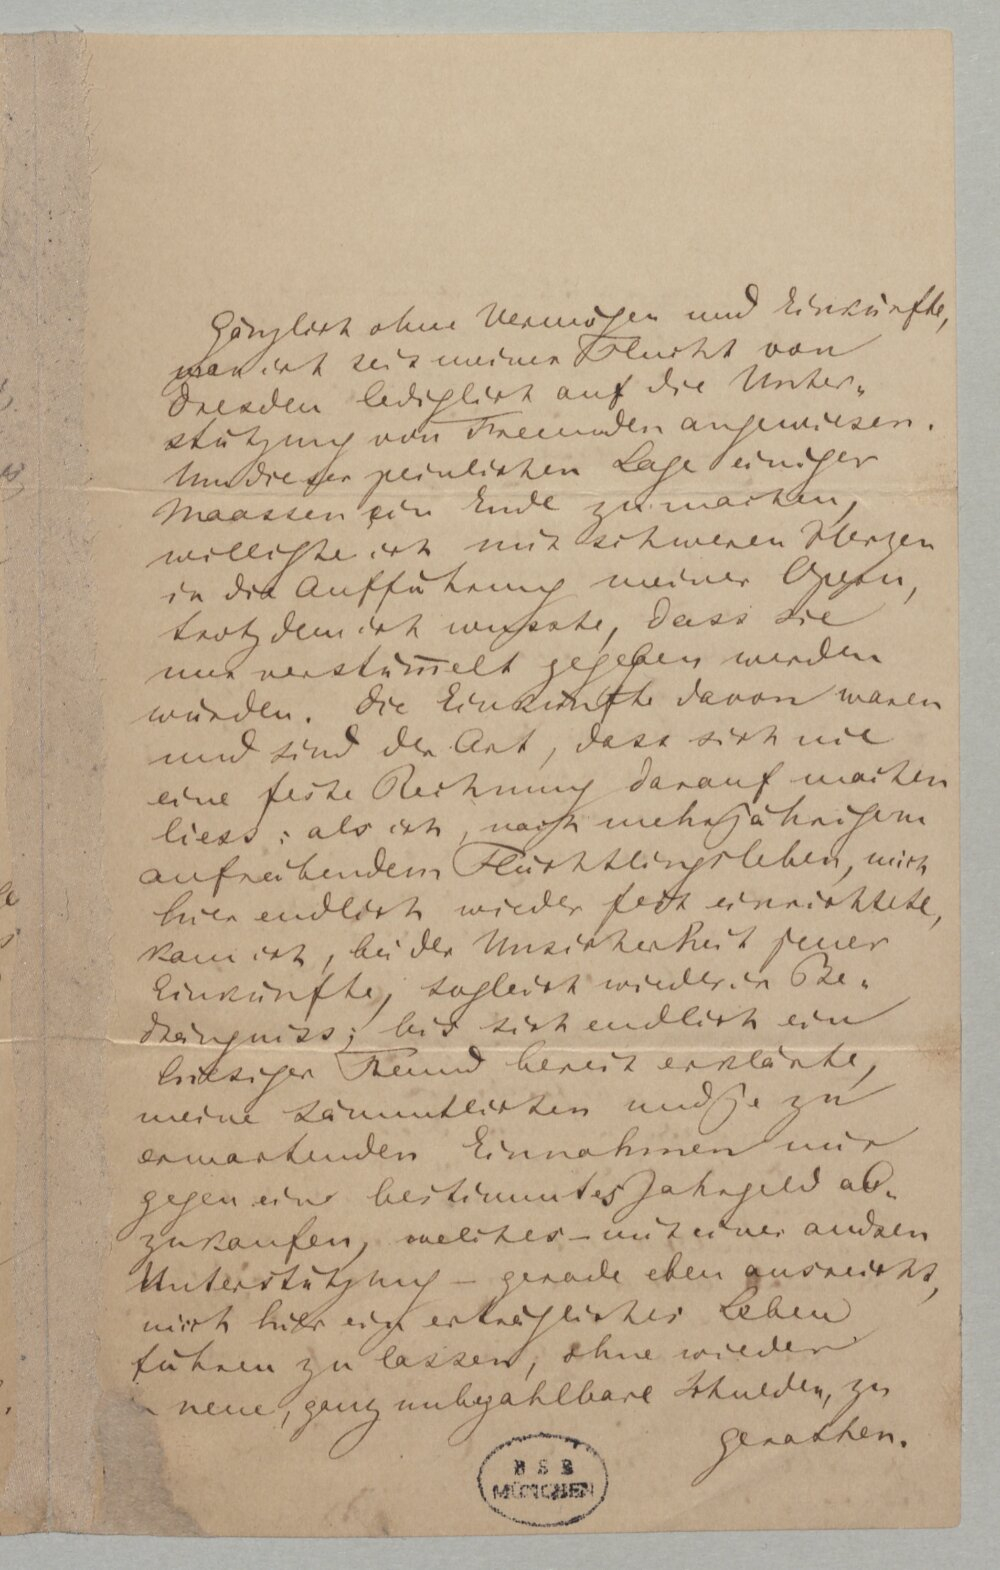 Gänzlich ohne Vermögen und Einkünfte,
war ich seit meiner Flucht von
Dresden lediglich auf die Unter-
stützung von Freunden angewiesen.
Um dieser peinlichen Lage einiger
Maassen ein Ende zu machen,
willigte ich mit schweren Herzen
in die Aufführung meiner Opern,
trotzdem ich wusste, dass sie
nur verstümelt gegeben werden
würden. Die Einkünfte davon waren
und sind der Art, dass sich nie
eine feste Rechnung darauf machen
liess: als ich, nach mehrjährigem
aufreibendem Flüchtlingsleben, mich
hier endlich wieder fest einrichtete,
kam ich, bei der Unsicherheit jener
Einkünfte, sogleich wieder in Be-
drängniss; bis sich endlich ein
hiesiger Freund bereit erklärte,
meine sämmtlichen und je zu
erwartenden Einnahmen mir
gegen ein bestimmtes Jahrgeld ab-
zukaufen, welches – mit einer andren
Unterstützung – gerade eben ausreicht,
mich hier ein erträgliches Leben
führen zu lassen, ohne wieder
neue, ganz unbezahlbare Schulden, zu
gerathen.
B S B
MÜNCHEN